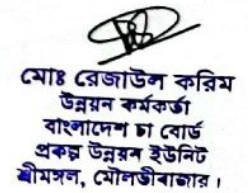 মোঃ রেজাউল করিম
উন্নয়ন কর্মকর্তা
বাংলাদেশ চা বোর্ড
প্রকল্প উন্নয়ন ইউনিট
শ্রীমঙ্গল, মৌলভীবাজার।